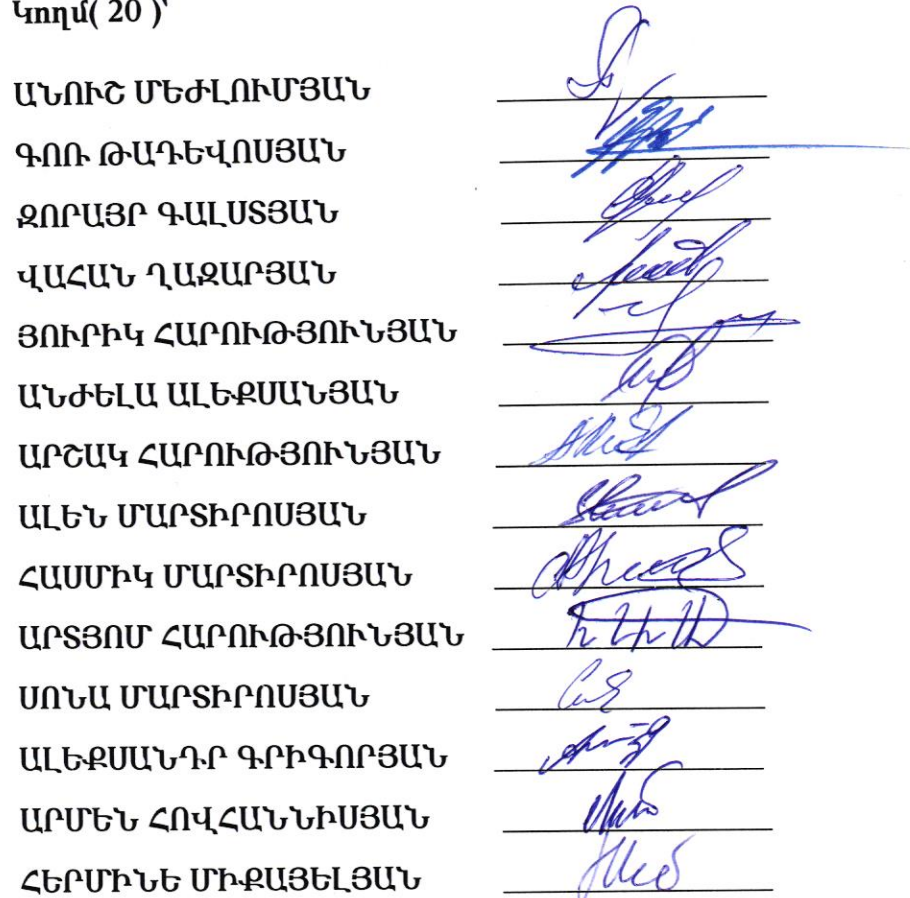 Կողմ( 20 )՝
ԱՆՈՒՇ ՄԵԺԼՈՒՄՅԱՆ
ԳՈՌ ԹԱԴԵՎՈՍՅԱՆ
ԶՈՐԱՅՐ ԳԱԼՍՏՅԱՆ
ՎԱՀԱՆ ՂԱԶԱՐՅԱՆ
ՅՈՒՐԻԿ ՀԱՐՈՒԹՅՈՒՆՅԱՆ
ԱՆԺԵԼԱ ԱԼԵՔՍԱՆՅԱՆ
ԱՐՇԱԿ ՀԱՐՈՒԹՅՈՒՆՅԱՆ
ԱԼԵՆ ՄԱՐՏԻՐՈՍՅԱՆ
ՀԱՍՄԻԿ ՄԱՐՏԻՐՈՍՅԱՆ
ԱՐՏՅՈՄ ՀԱՐՈՒԹՅՈՒՆՅԱՆ
ՍՈՆԱ ՄԱՐՏԻՐՈՍՅԱՆ
ԱԼԵՔՍԱՆԴՐ ԳՐԻԳՈՐՅԱՆ
ԱՐՄԵՆ ՀՈՎՀԱՆՆԻՍՅԱՆ
ՀԵՐՄԻՆԵ ՄԻՔԱՅԵԼՅԱՆ